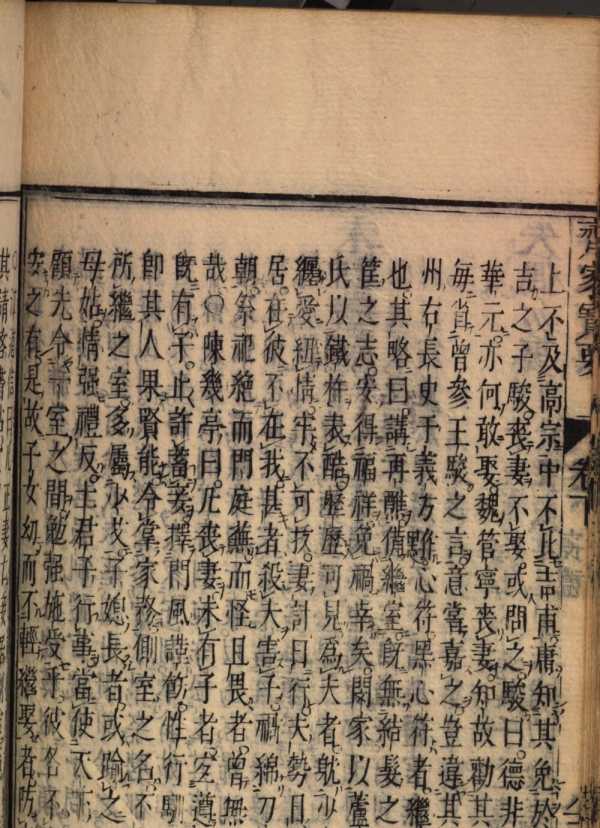 齊家寶要 卷下
上不及高宗中不比吉甫庸知其免於
吉之子駿喪妻不娶或問之駿曰德非
華元亦何敢娶魏管寧喪妻知故勸其
每省曾參王駿之言意嘗嘉之豈違其
州右長史于義方黑心符黑心符者繼
也其略曰講再醮備繼室旣無結髮之
筐之志安得福祥免禍幸矣閱家以蘆
氏以鐵杵表酷歷歷可見為夫者耽少
纏愛紐情牢不可抜妻計日行夫勢日
居在彼不在我甚者殺夫害子禍綿刀
朝祭祀絶而門庭蕪而怪且畏者曾無
哉○陳幾亭曰凡喪妻未有子者宜遵
旣有子止許蓄妾擇門風謹飭性行馴
卽其人果賢能令掌家務側室之名不
所繼之室多屬少艾子媳長者或踰之
母姑情强禮反主君子行事當使天亦
顧先令一室之間勉强施受乎彼名不
安之有是故子女幼而不輕繼娶者防